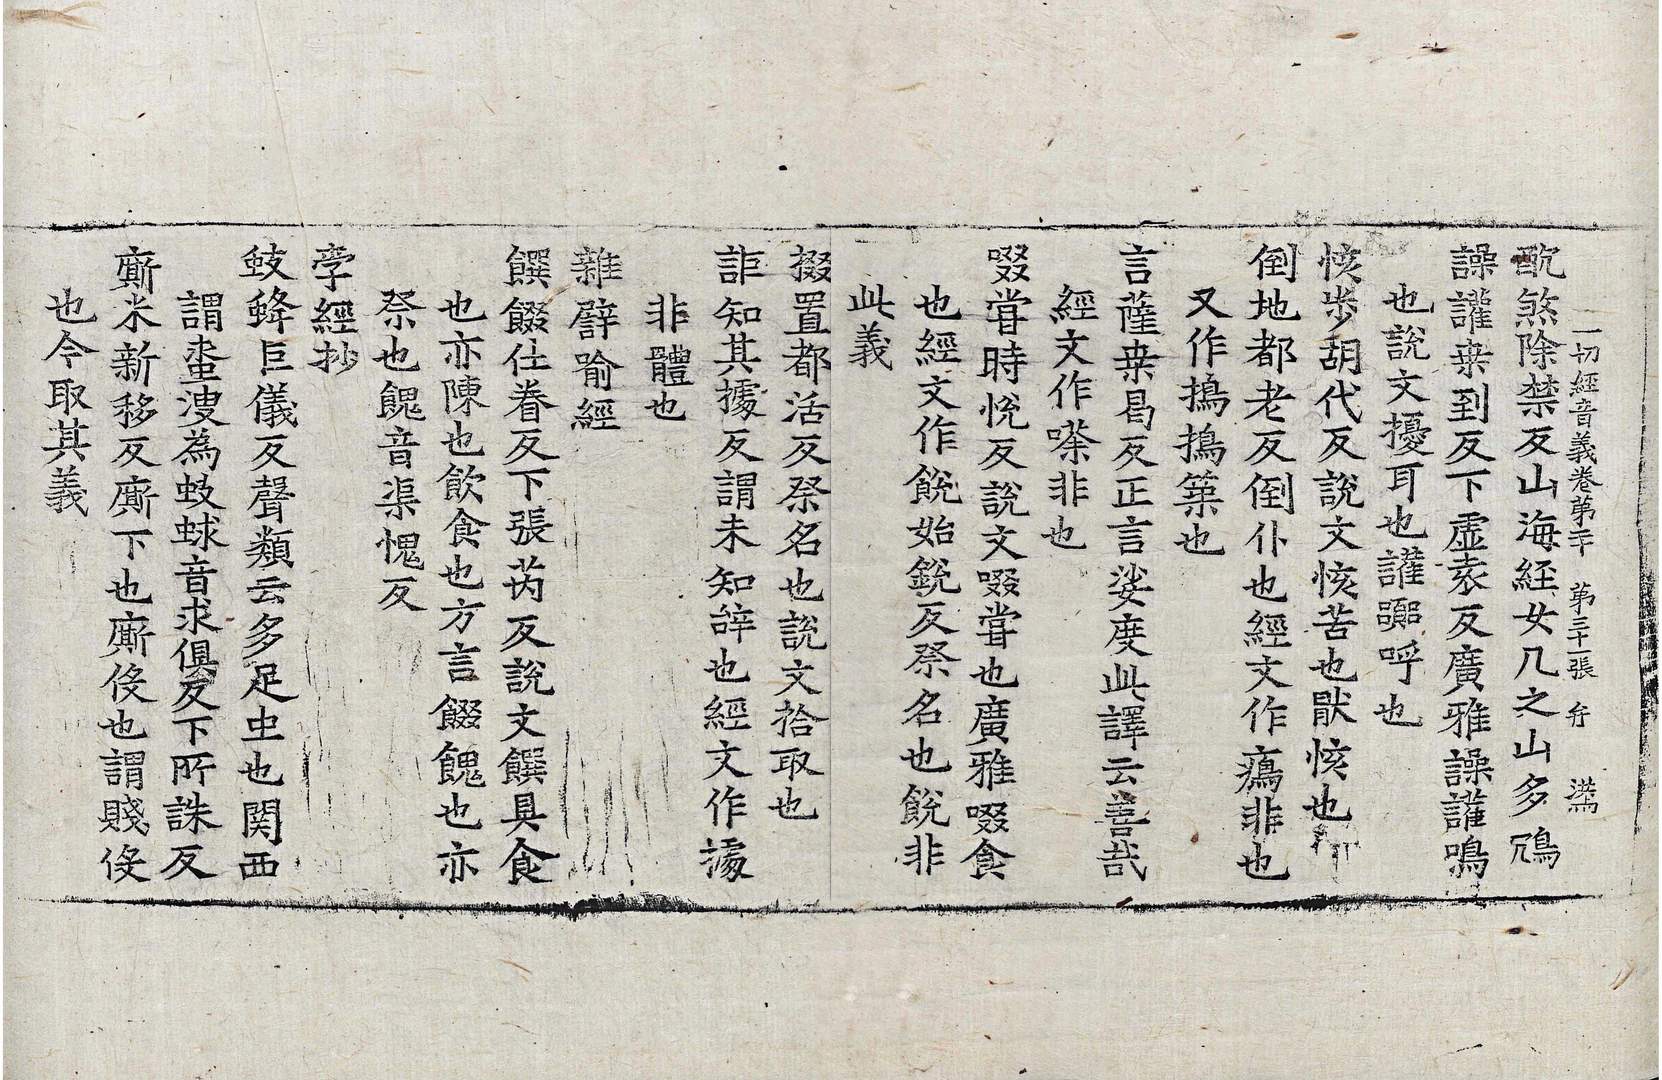 一切經音義卷第二十　第三十一張　弁　洪馬
酖煞除禁反山海経女几之山多鴆
譟讙桒到反下虛袁反廣雅譟讙鳴
也說文擾耳也讙嚻呼也
㤥步胡代反說文㤥苦也猒㤥也
倒地都老反倒仆也經文作㿒非也
又作搗搗築也
言薩桒曷反正言娑度此譯云善哉
經文作㗬非也
啜甞時悅反說文啜甞也廣雅啜食
也經文作餟始銳反祭名也餟非
此義
掇置都活反祭名也說文拾取也
詎知其據反謂未知辝也經文作據
非體也
雜譬喻經
饌餟仕眷反下張芮反說文饌具食
也亦陳也飲食也方言餟餽也亦
祭也餽音渠愧反
孛經抄
蚑蜂巨儀反聲類云多足虫也関西
謂蚕溲為蚑蛷音求俱反下所誅反
廝米新移反廝下也廝伇也謂賤伇
也今取其義